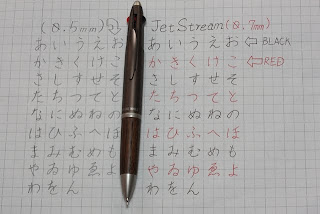 (0.5mm) JetStream(0.7mm)
あいうえお あいうえお ⇦BLACK
かきくけこ かきくけこ ⇦RED
さしすせそ さしすせそ
たちつてと たちつてと
なにぬねの なにぬねの
はひふへほ はひふへほ
まみむめも まみむめも
やゐゆゑよ やゐゆゑよ
わをん わをん